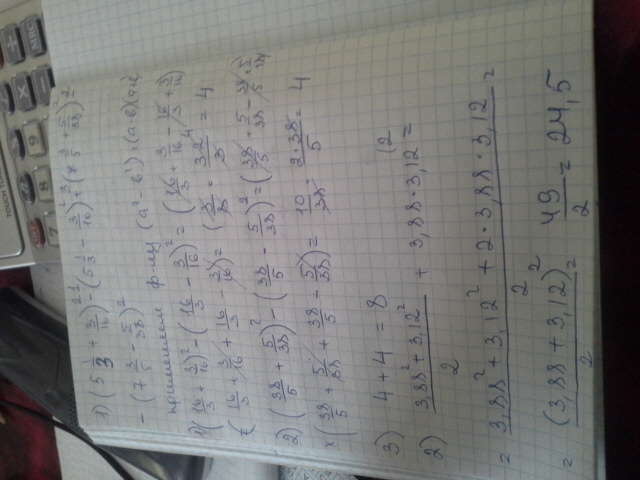 TOUCH TONE
7 8 9 MRC
1) (5 1/3 + 3/16)² - (5 1/3 - 3/16)² + (7 3/5 + 5/38)² -
- (7 3/5 - 5/38)²
применяем ф-лу (a² - b²) = (a-b)(a+b)
1) (16/3 + 3/16)² - (16/3 - 3/16)² = (16/3 + 3/16 - 16/3 + 3/16)
(16/3 + 3/16 + 16/3 - 3/16) = (3/8 · 32/3 = 4
2) (38/5 + 5/38)² - (38/5 - 5/38)² = (38/5 + 5/38 - 38/5 + 5/38)
x (38/5 + 5/38 + 38/5 - 5/38) = 10/38 · 2·38/5 = 4
3) 4 + 4 = 8
2) (3,88² + 3,12²)/2 + 3,88 · 3,12 (2 =
= (3,88² + 3,12² + 2 · 3,88 · 3,12)/2 =
= (3,88 + 3,12)²/2 = 49/2 = 24,5